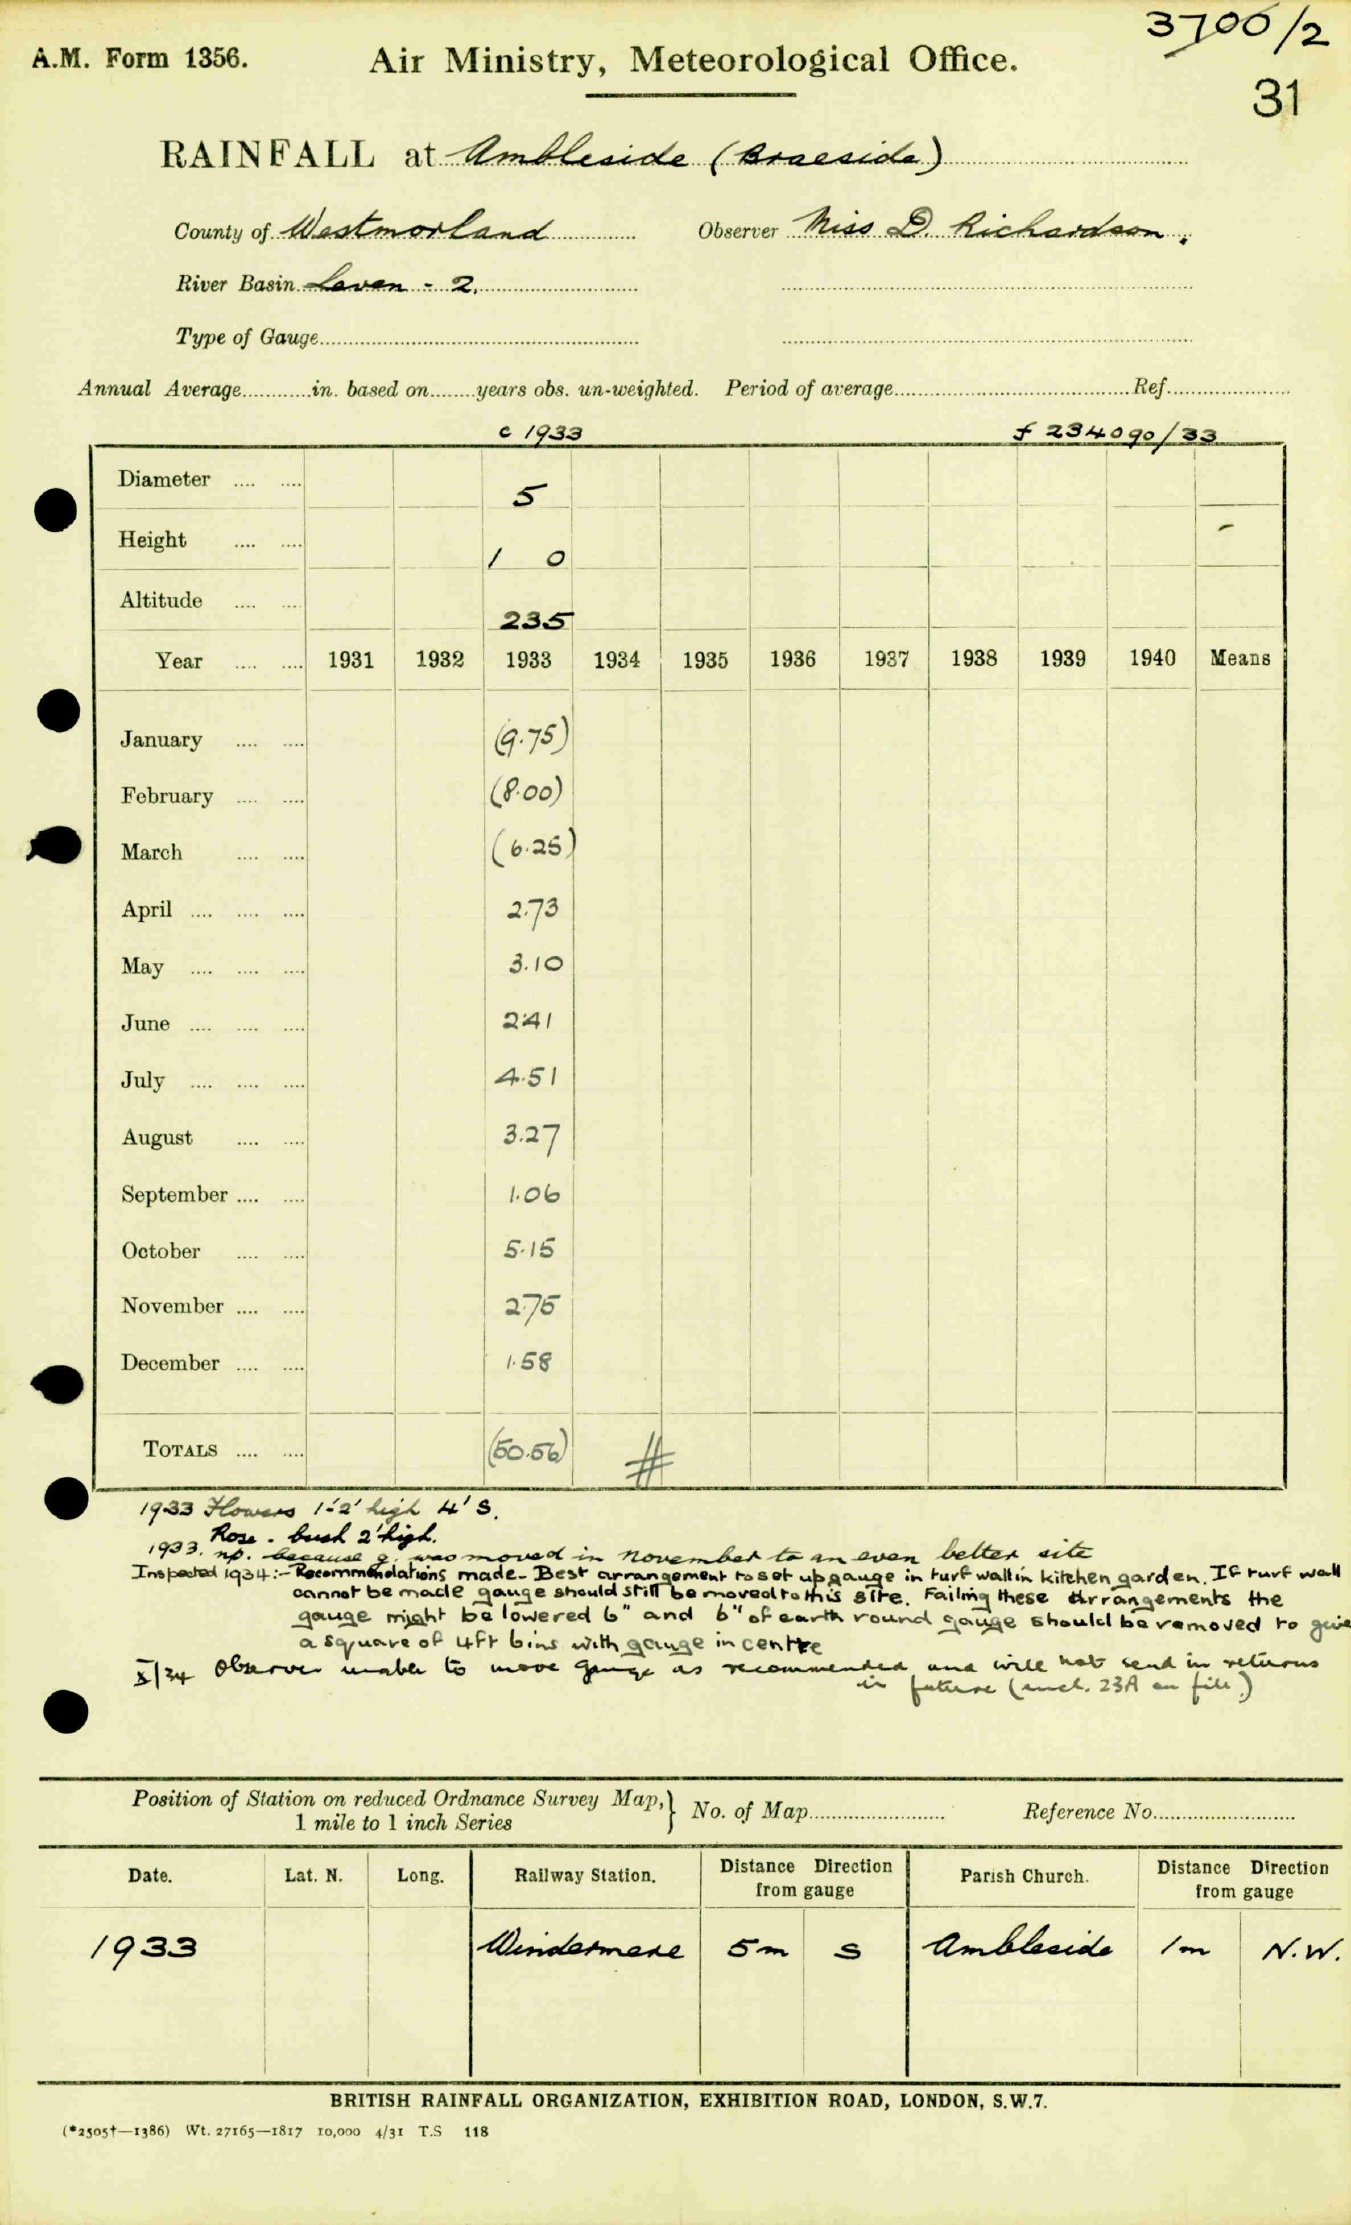 3706/2
A.M. Form 1356. Air Ministry, Meteorological Office.
31
RAINFALL at Ambleside (Braeside)
County of Westmorland Observer Miss D. Richardson.
River Basin Leven - 2.
Type of Gauge
Annual Average in. based on years obs. un-weighted. Period of average Ref.
c 1933 f 234090/33
Diameter 5
Height 1 0 -
Altitude 235
Year 1931 1932 1933 1934 1935 1936 1937 1938 1939 1940 Means
January (9.75)
February (8.00)
March (6.25)
April 2.73
May 3.10
June 2.41
July 4.51
August 3.27
September 1.06
October 5.15
November 2.75
December 1.58
TOTALS (50.56) #
1933 Flowers 1'-2' high 4' S.
Rose-bush 2' high.
1933. np. because g. was moved in November to an even better site
Inspected 1934:- Recommendations made - Best arrangement to set up gauge in turf wall in kitchen garden. If turf wall
cannot be made gauge should still be moved to this site. Failing these arrangements the
gauge might be lowered 6" and 6" of earth round gauge should be removed to give
a square of 4ft 6ins with gauge in centre
X/34 Observer unable to move gauge as recommended and will not send in returns
in future (encl. 23A on file)
Position of Station on reduced Ordnance Survey Map, 1 mile to 1 inch Series } No. of Map Reference No.
Date. Lat. N. Long. Railway Station. Distance Direction from gauge Parish Church. Distance Direction from gauge
1933 Windermere 5m S Ambleside 1m N.W.
BRITISH RAINFALL ORGANIZATION, EXHIBITION ROAD, LONDON, S.W.7.
(*2505†—1386) Wt. 27165—1817 10,000 4/31 T.S 118